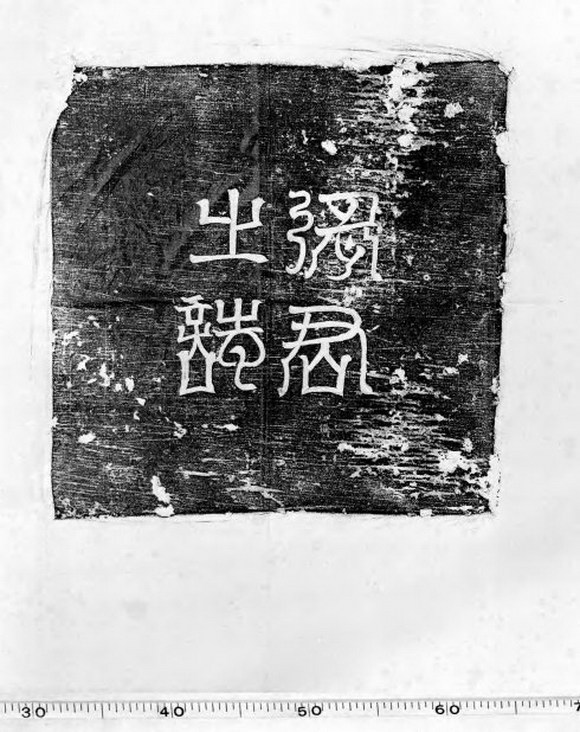 君
之誌
30 40 50 60 7